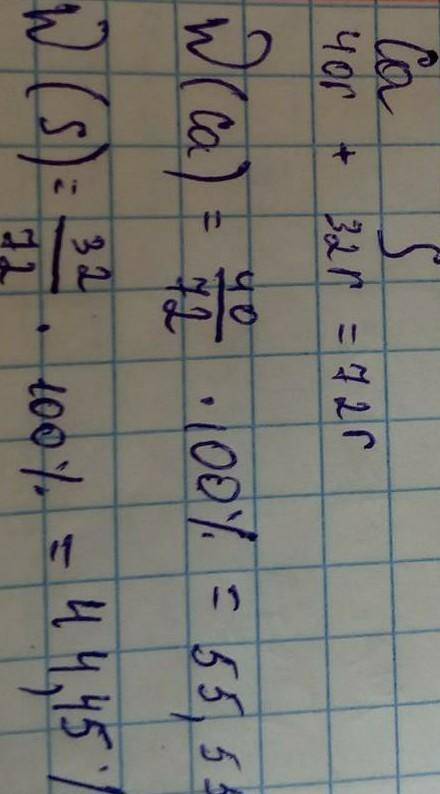 Ca S
40г + 32г = 72г
W(Ca) = 40/72 · 100% = 55,55
W(S) = 32/72 · 100% = 44,45%